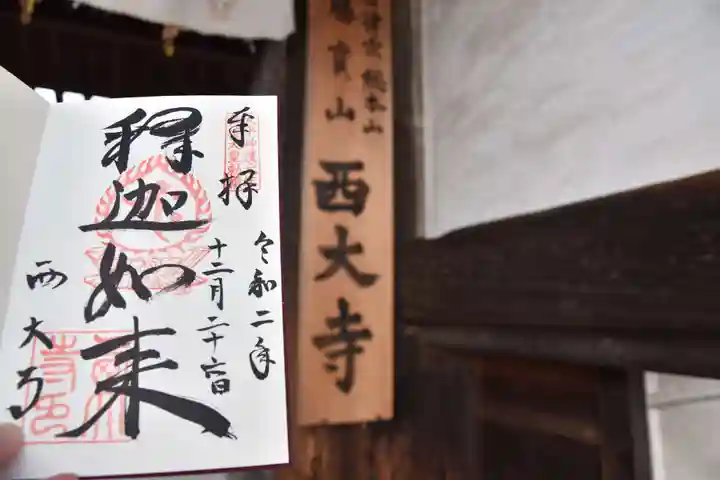 奉拝
令和二年
十二月二十六日
釋迦如来
西大寺
真言律宗 総本山
勝宝山
西大寺